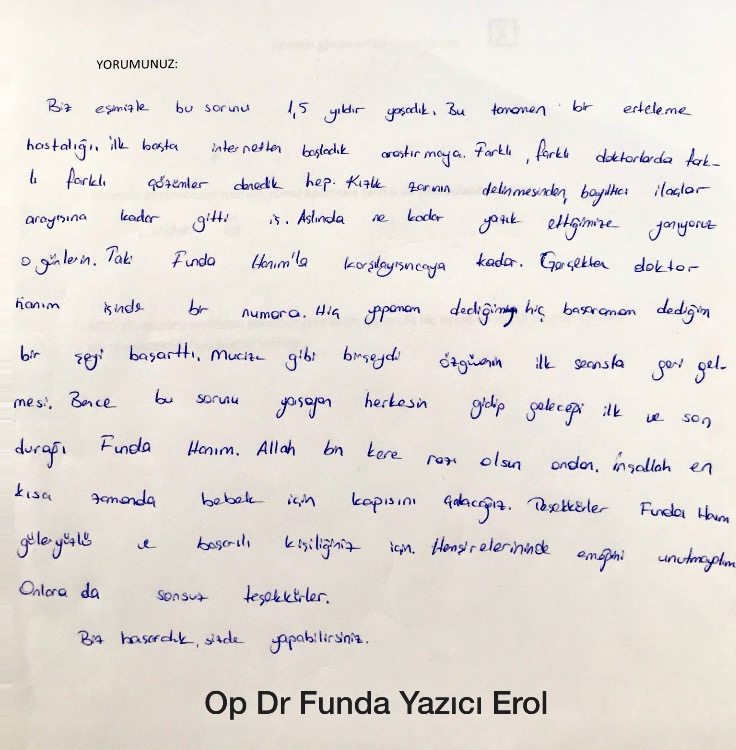 YORUMUNUZ:
Biz eşimizle bu sorunu 1,5 yıldır yaşadık. Bu tamamen bir erteleme
hastalığı. ilk başta internetten başladık araştırmaya. Farklı, farklı doktorlarda fark-
lı farklı çözümler denedik hep. Kızlık zarının delinmesinden, bayıltıcı ilaçlar
arayışına kadar gitti iş. Aslında ne kadar yazık ettiğimize yanıyoruz
o günlerin. Taki Funda Hanım'la karşılayışıncaya kadar. Gerçekten doktor
Hanım işinde bir numara. Hiç yapamam dediğimiz hiç başaramam dediğim
bir şeyi başarttı. Mucize gibi birşeydi özgüvenin ilk seansta geri gel-
mesi. Bence bu sorunu yaşayan herkesin gidip geleceği ilk ve son
durağı Funda Hanım. Allah bin kere razı olsun ondan. inşallah en
kısa zamanda bebek için kapısını çalacağız. Teşekkürler Funda Hanım
güleryüzlü ve başarılı kişiliğiniz için. Hemşirelerininde emeğini unutmayalım
Onlara da sonsuz teşekkürler.
Biz başardık, sizde yapabilirsiniz.
Op Dr Funda Yazıcı Erol